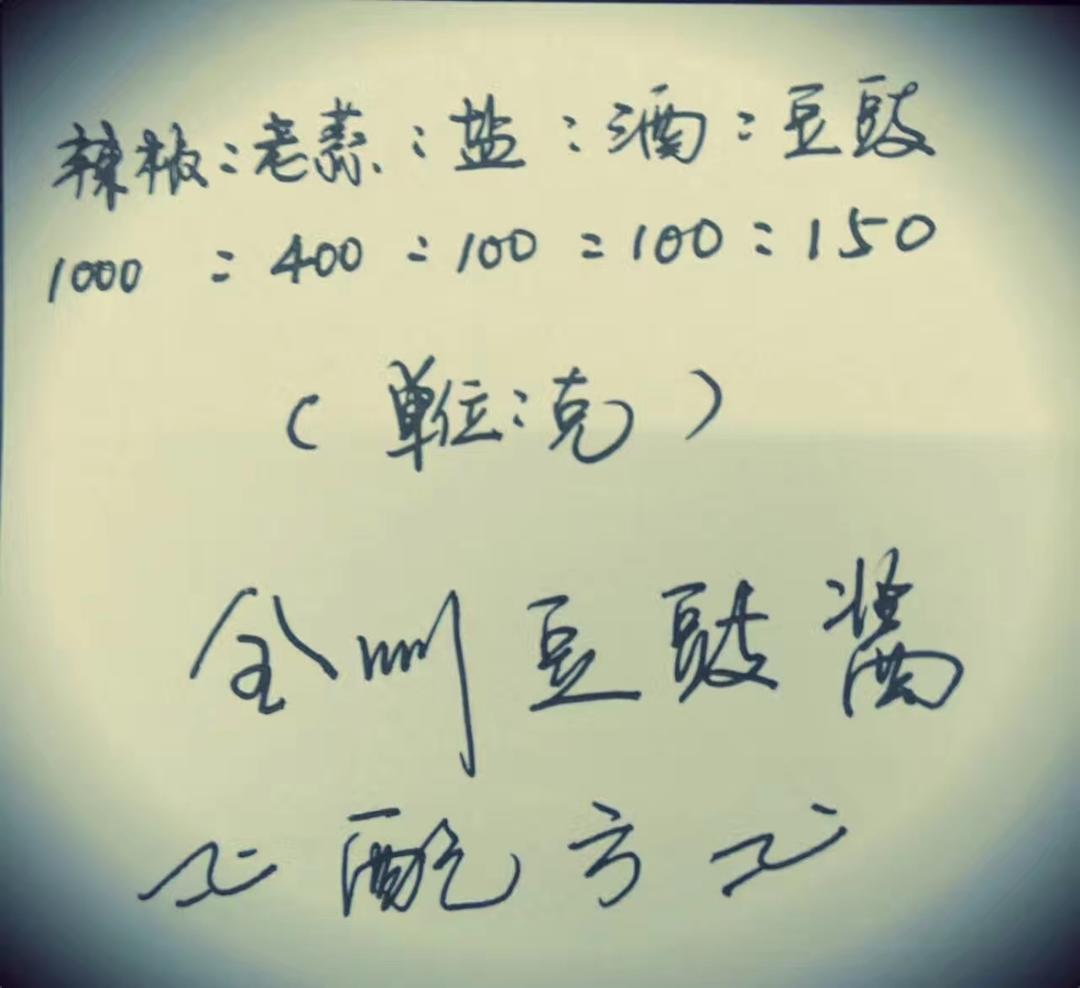 辣椒:老蒜:盐:酒:豆豉
1000:400:100:100:150
(单位:克)
全州豆豉酱
~配方~